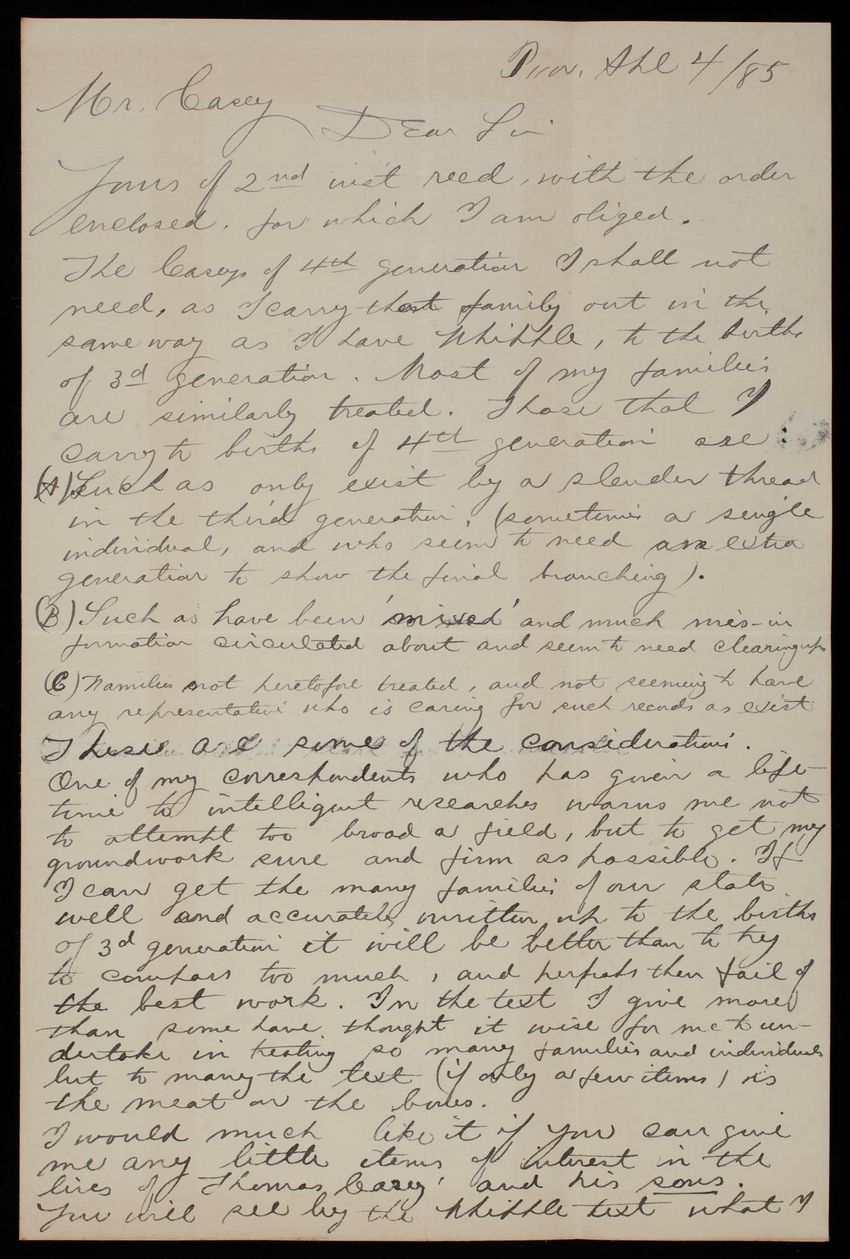 Prov. Apl 4/85
Mr. Casey
Dear Sir
Yours of 2nd inst recd, with the order
enclosed. for which I am obliged.
The Caseys of 4th generation I shall not
need, as I carry that family out in the
same way as I have Whipple, to the births
of 3d generation. Most of my families
are similarly treated. Those that I
carry to births of 4th generation are:
(A) Such as only exist by a slender thread
in the third generation, (sometimes a single
individual, and who seem to need an extra
generation to show the final branching).
(B) Such as have been 'mixed' and much mis-in
formation circulated about and seem to need clearing up
(C) Families not heretofore treated, and not seeming to have
any representative who is caring for such records as exist
These are some of the considerations.
One of my correspondents who has given a life-
time to intelligent researches warns me not
to attempt too broad a field, but to get my
groundwork sure and firm as possible. If
I can get the many families of our state
well and accurately written up to the births
of 3d generation it will be better than to try
to compass too much, and perhaps then fail of
the best work. In the text I give more
than some have thought it wise for me to un-
dertake in treating so many families and individuals
but to many the text (if only a few items) is
the meat on the bones.
I would much like it if you can give
me any little items of interest in the
lives of Thomas Casey and his sons.
You will see by the Whipple text what I